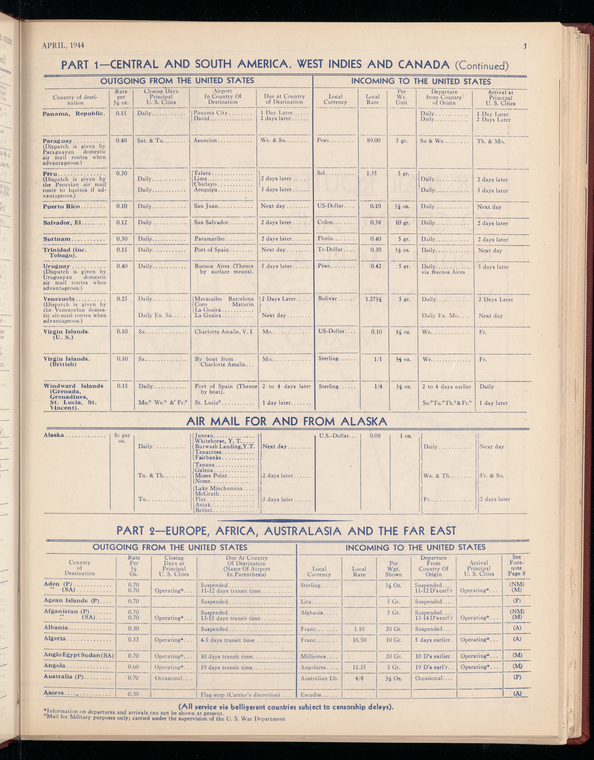 APRIL, 1944 3
PART 1—CENTRAL AND SOUTH AMERICA, WEST INDIES AND CANADA (Continued)
OUTGOING FROM THE UNITED STATES INCOMING TO THE UNITED STATES
Country of desti-nation Rate per ½ oz. Closing Days Principal U. S. Cities Airport In Country Of Destination Due at Country of Destination Local Currency Local Rate Per Wt. Unit Departure from Country of Origin Arrival at Principal U. S. Cities
Panama, Republic. 0.15 Daily Panama City 1 Day Later Daily 1 Day Later
David 2 days later Daily 2 Days Later
Paraguay 0.40 Sat. & Tu. Asuncion We. & Su. Peso 89.00 5 gr. Su & We. Th. & Mo.
(Dispatch is given by
Paraguayan domestic
air mail routes when
advantageous.)
Peru 0.30 Talara Sol 1.35 5 gr.
(Dispatch is given by Daily Lima 2 days later Daily 2 days later
the Peruvian air mail Chiclayo
route to Iquitos if ad- Daily Arequipa 3 days later Daily 3 days later
vantageous.)
Puerto Rico 0.10 Daily San Juan Next day US-Dollar 0.10 ½ oz. Daily Next day
Salvador, El 0.12 Daily San Salvador 2 days later Colon 0.38 10 gr. Daily 2 days later
Surinam 0.30 Daily Paramaribo 2 days later Florin 0.40 5 gr. Daily 2 days later
Trinidad (inc. 0.15 Daily Port of Spain Next day Tr-Dollar 0.30 ½ oz. Daily Next day
Tobago).
Uruguay 0.40 Daily Buenos Aires (Thence 5 days later Peso 0.42 5 gr. Daily 5 days later
(Dispatch is given by by surface means). via Buenos Aires
Uruguayan domestic
air mail routes when
advantageous.)
Venezuela 0.25 Daily Maracaibo Barcelona 2 Days Later Bolivar 1.27½ 5 gr. Daily 2 Days Later
(Dispatch is given by Coro Maturin
the Venezuelan domes- La Guaira
tic air-mail routes when Daily Ex. Su. La Guaira Next day Daily Ex. Mo. Next day
advantageous.)
Virgin Islands. 0.10 Sa. Charlotte Amalie, V. I. Mo. US-Dollar 0.10 ½ oz. We. Fr.
(U. S.)
Virgin Islands. 0.10 Sa. By boat from Mo. Sterling 1/1 ½ oz. We. Fr.
(British) Charlotte Amalie
Windward Islands 0.15 Daily Port of Spain (Thence 2 to 4 days later Sterling 1/4 ½ oz. 2 to 4 days earlier Daily
(Grenada, by boat).
Grenadines,
St. Lucia, St. Mo.* We.* & Fr.* St. Lucia* 1 day later Su.*Tu.*Th.*&Fr.* 1 day later
Vincent).
AIR MAIL FOR AND FROM ALASKA
Alaska 8c per oz. Juneau U.S.-Dollar 0.08 1 oz.
Whitehorse, Y. T.
Daily Burwash Landing, Y.T. Next day Daily Next day
Tanacross
Fairbanks
Tanana
Galena
Tu. & Th. Moses Point 2 days later We. & Th. Fr. & Su.
Nome
Lake Minchumina
McGrath
Tu. Flat 3 days later Fr. 2 days later
Aniak
Bethel
PART 2—EUROPE, AFRICA, AUSTRALASIA AND THE FAR EAST
OUTGOING FROM THE UNITED STATES INCOMING TO THE UNITED STATES
Country of Destination Rate Per ½ Oz. Closing Days at Principal U. S. Cities Due At Country Of Destination (Name Of Airport In Parenthesis) Local Currency Local Rate Per Wgt. Shown Departure From Country Of Origin Arrival Principal U. S. Cities See Foot-note Page 8
Aden (P) 0.70 Suspended Sterling ½ Oz. Suspended (NM)
" (SA) 0.70 Operating* 11-12 days transit time 11-12 D'earl'r Operating* (M)
Agean Islands (P) 0.70 Suspended Lira 5 Gr. Suspended (P)
Afganistan (P) 0.70 Suspended Afghania 5 Gr. Suspended (NM)
" (SA) 0.70 Operating* 13-15 days transit time 13-14 D'earl'r Operating* (M)
Albania 0.30 Suspended Franc 1.10 20 Gr. Suspended (A)
Algeria 0.55 Operating* 4-5 days transit time Franc 16.50 10 Gr. 5 days earlier Operating* (A)
Anglo Egypt Sudan (SA) 0.70 Operating* 10 days transit time Milliemes 20 Gr. 10 D's earlier Operating* (M)
Angola 0.60 Operating* 19 days transit time Angolares 11.35 5 Gr. 19 D's earl'r Operating* (M)
Australia (P) 0.70 Occasional Australian Lb. 4/8 ½ Oz. Occasional (P)
Azores 0.30 Flag stop (Carrier's discretion) Escudos (A)
(All service via belligerent countries subject to censorship delays).
*Information on departures and arrivals can not be shown at present.
*Mail for Military purposes only; carried under the supervision of the U. S. War Department